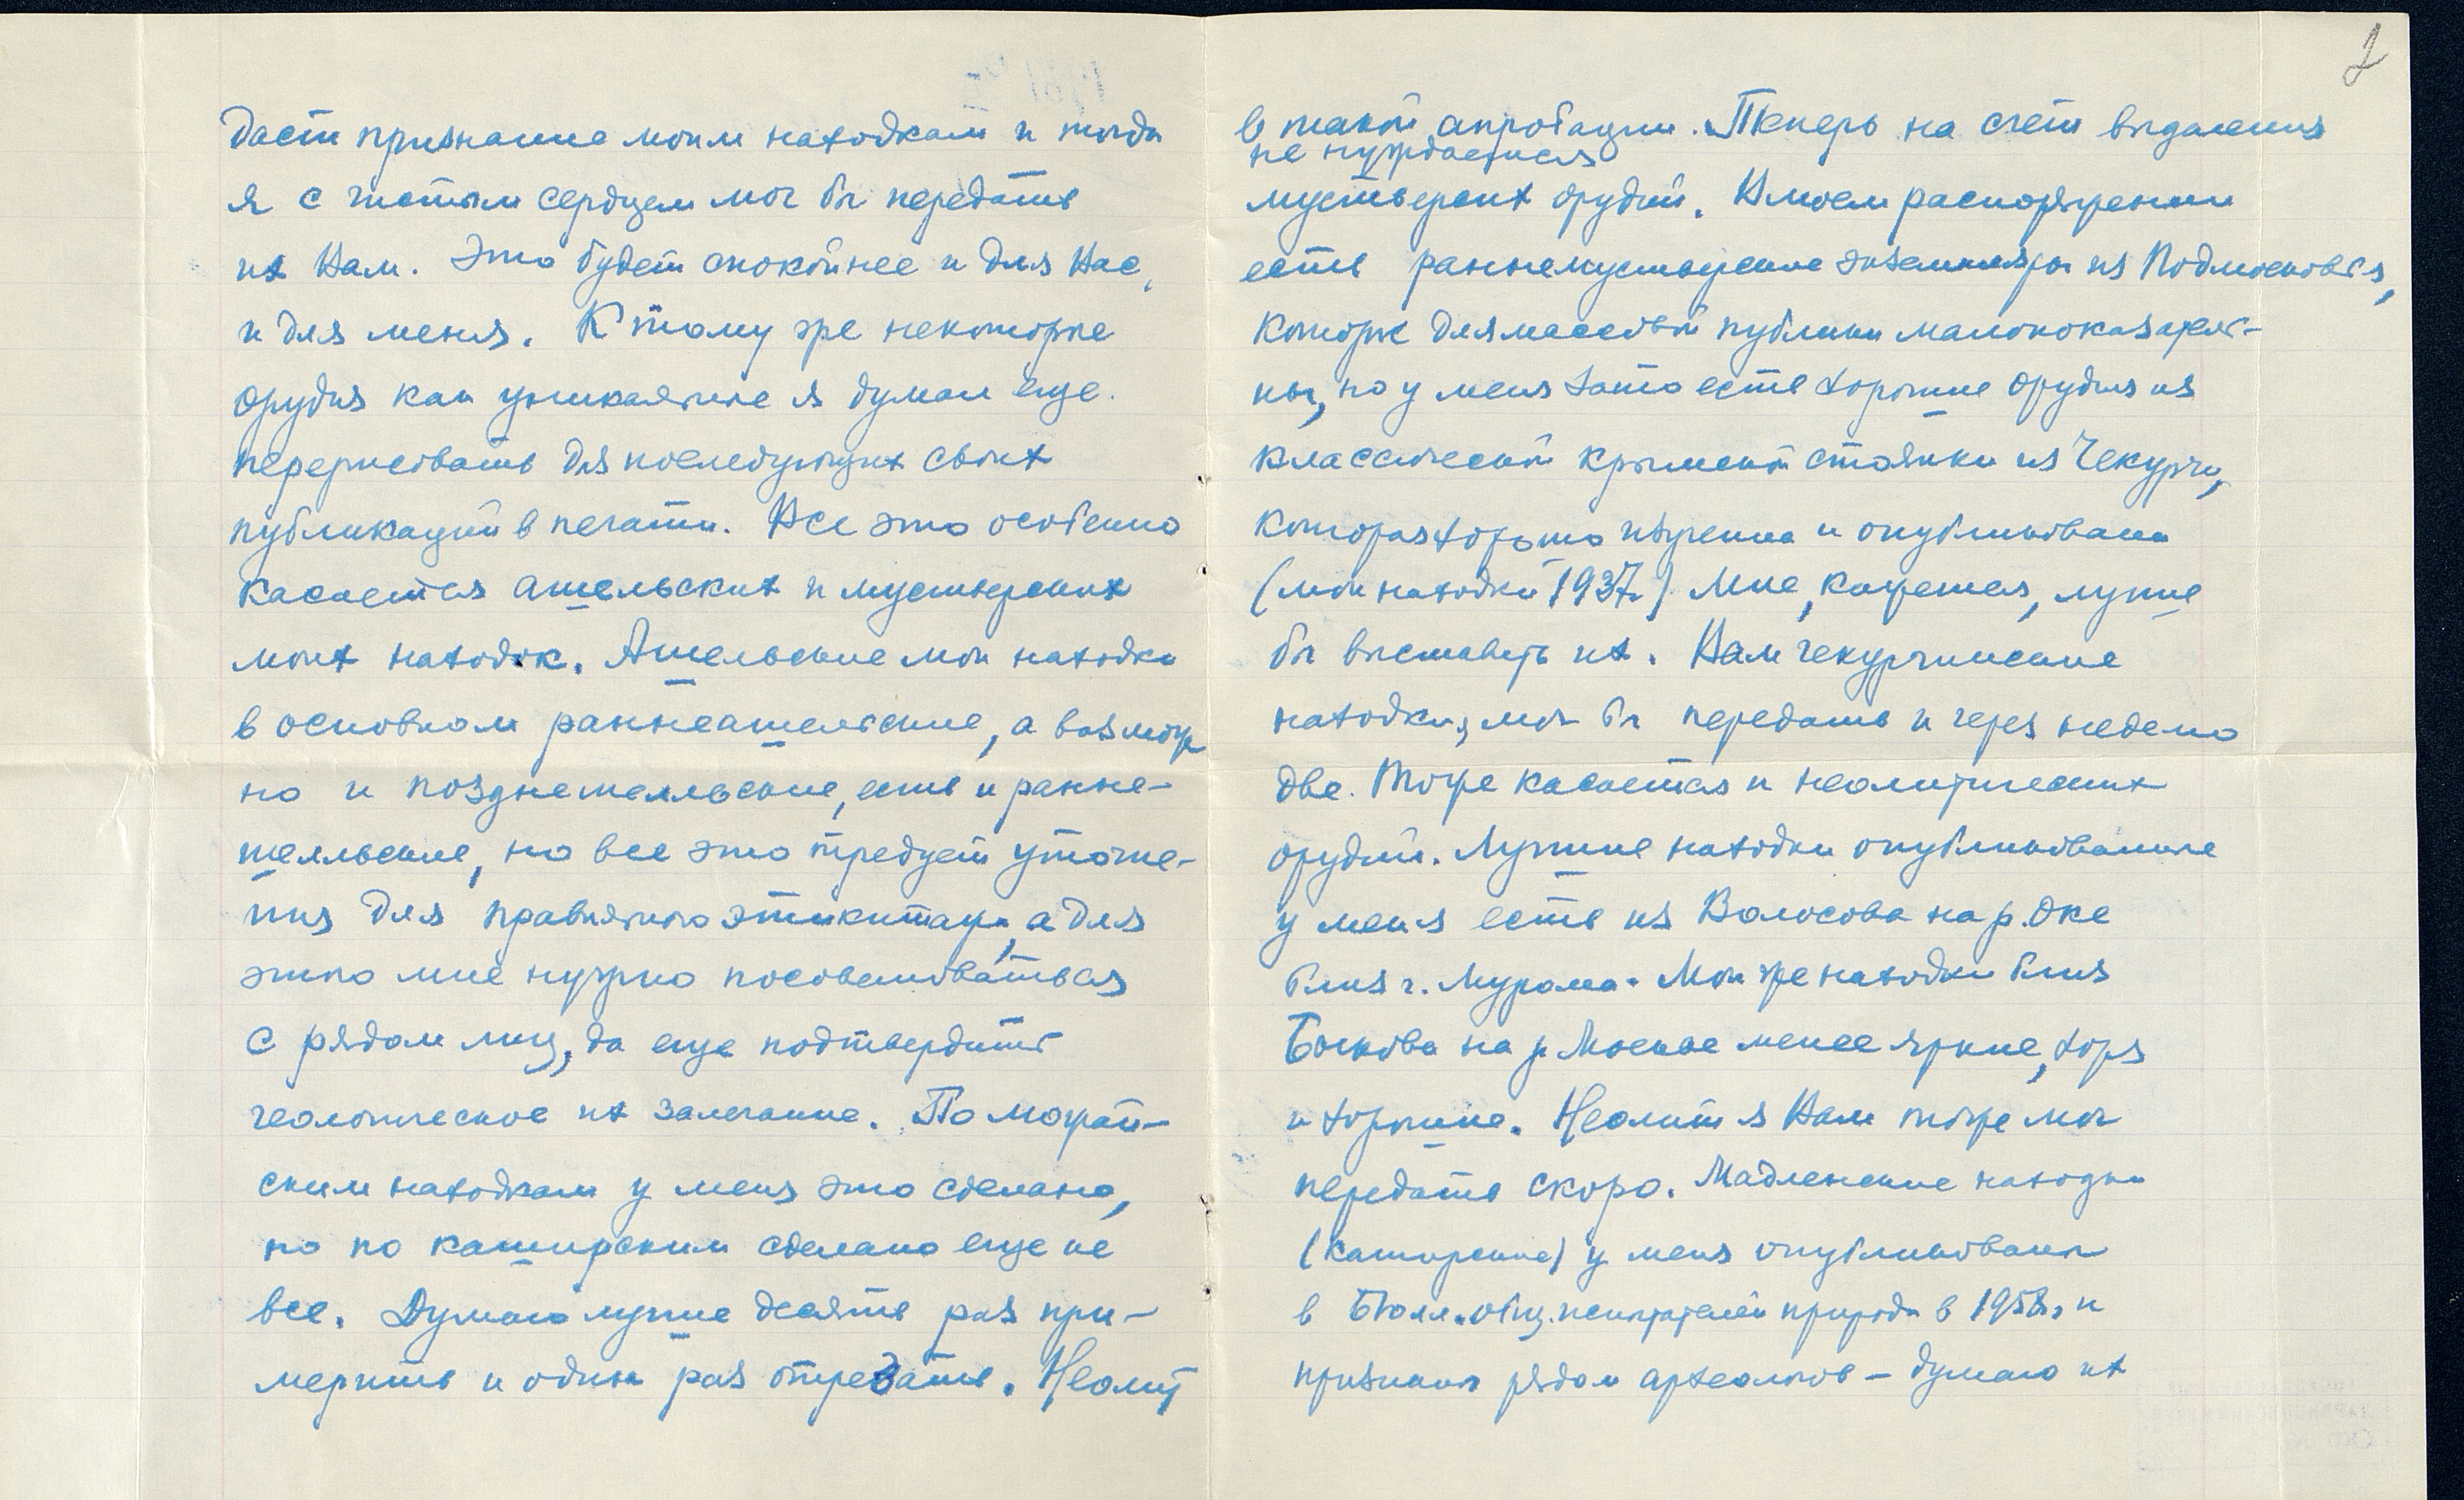 даст признание моим находкам и тогда
я с чистым сердцем мог бы передать
их Вам. Это будет спокойнее и для Вас,
и для меня. К тому же некоторые
орудия как уникальные я думаю еще
перерисовать для последующих своих
публикаций в печати. Все это особенно
касается ашельских и мустьерских
моих находок. Ашельские мои находки
в основном раннеашельские, а возмож
но и позднешелльские, есть и ранне-
шелльские, но все это требует уточне-
ния для правильного этикитажа, а для
этого мне нужно посоветоваться
с рядом лиц, да еще подтвердить
геологическое их залегание. По можай-
ским находкам у меня это сделано,
но по каширским сделано еще не
все. Думаю лучше десять раз при-
мерить и один раз отрезать. Неолит
2
в такой апробации. Теперь на счет выделения
не нуждается
мустьерских орудий. В моем распоряжении
есть раннемустьерские экземпляры из Подмосковья,
которые для массовой публики малопоказатель-
ны, но у меня зато есть хорошие орудия из
классической крымской стоянки из Чекурчи,
которая хорошо изучена и опубликована
(мои находки 1937г.) Мне, кажется, лучше
бы выставить их. Вам чекурчинские
находки, мог бы передать и через неделю
две. Тоже касается и неолитических
орудий. Лучшие находки опубликованные
у меня есть из Волосова на р. Оке
близ г. Мурома. Мои же находки близ
на р Москве менее яркие, хотя
и хорошие. Неолит я Вам тоже мог
передать скоро. Мадленские находки
(каширские) у меня опубликованы
в Бюлл. общ. испытателей природы в 1958г. и
признаны рядом археологов – думаю их